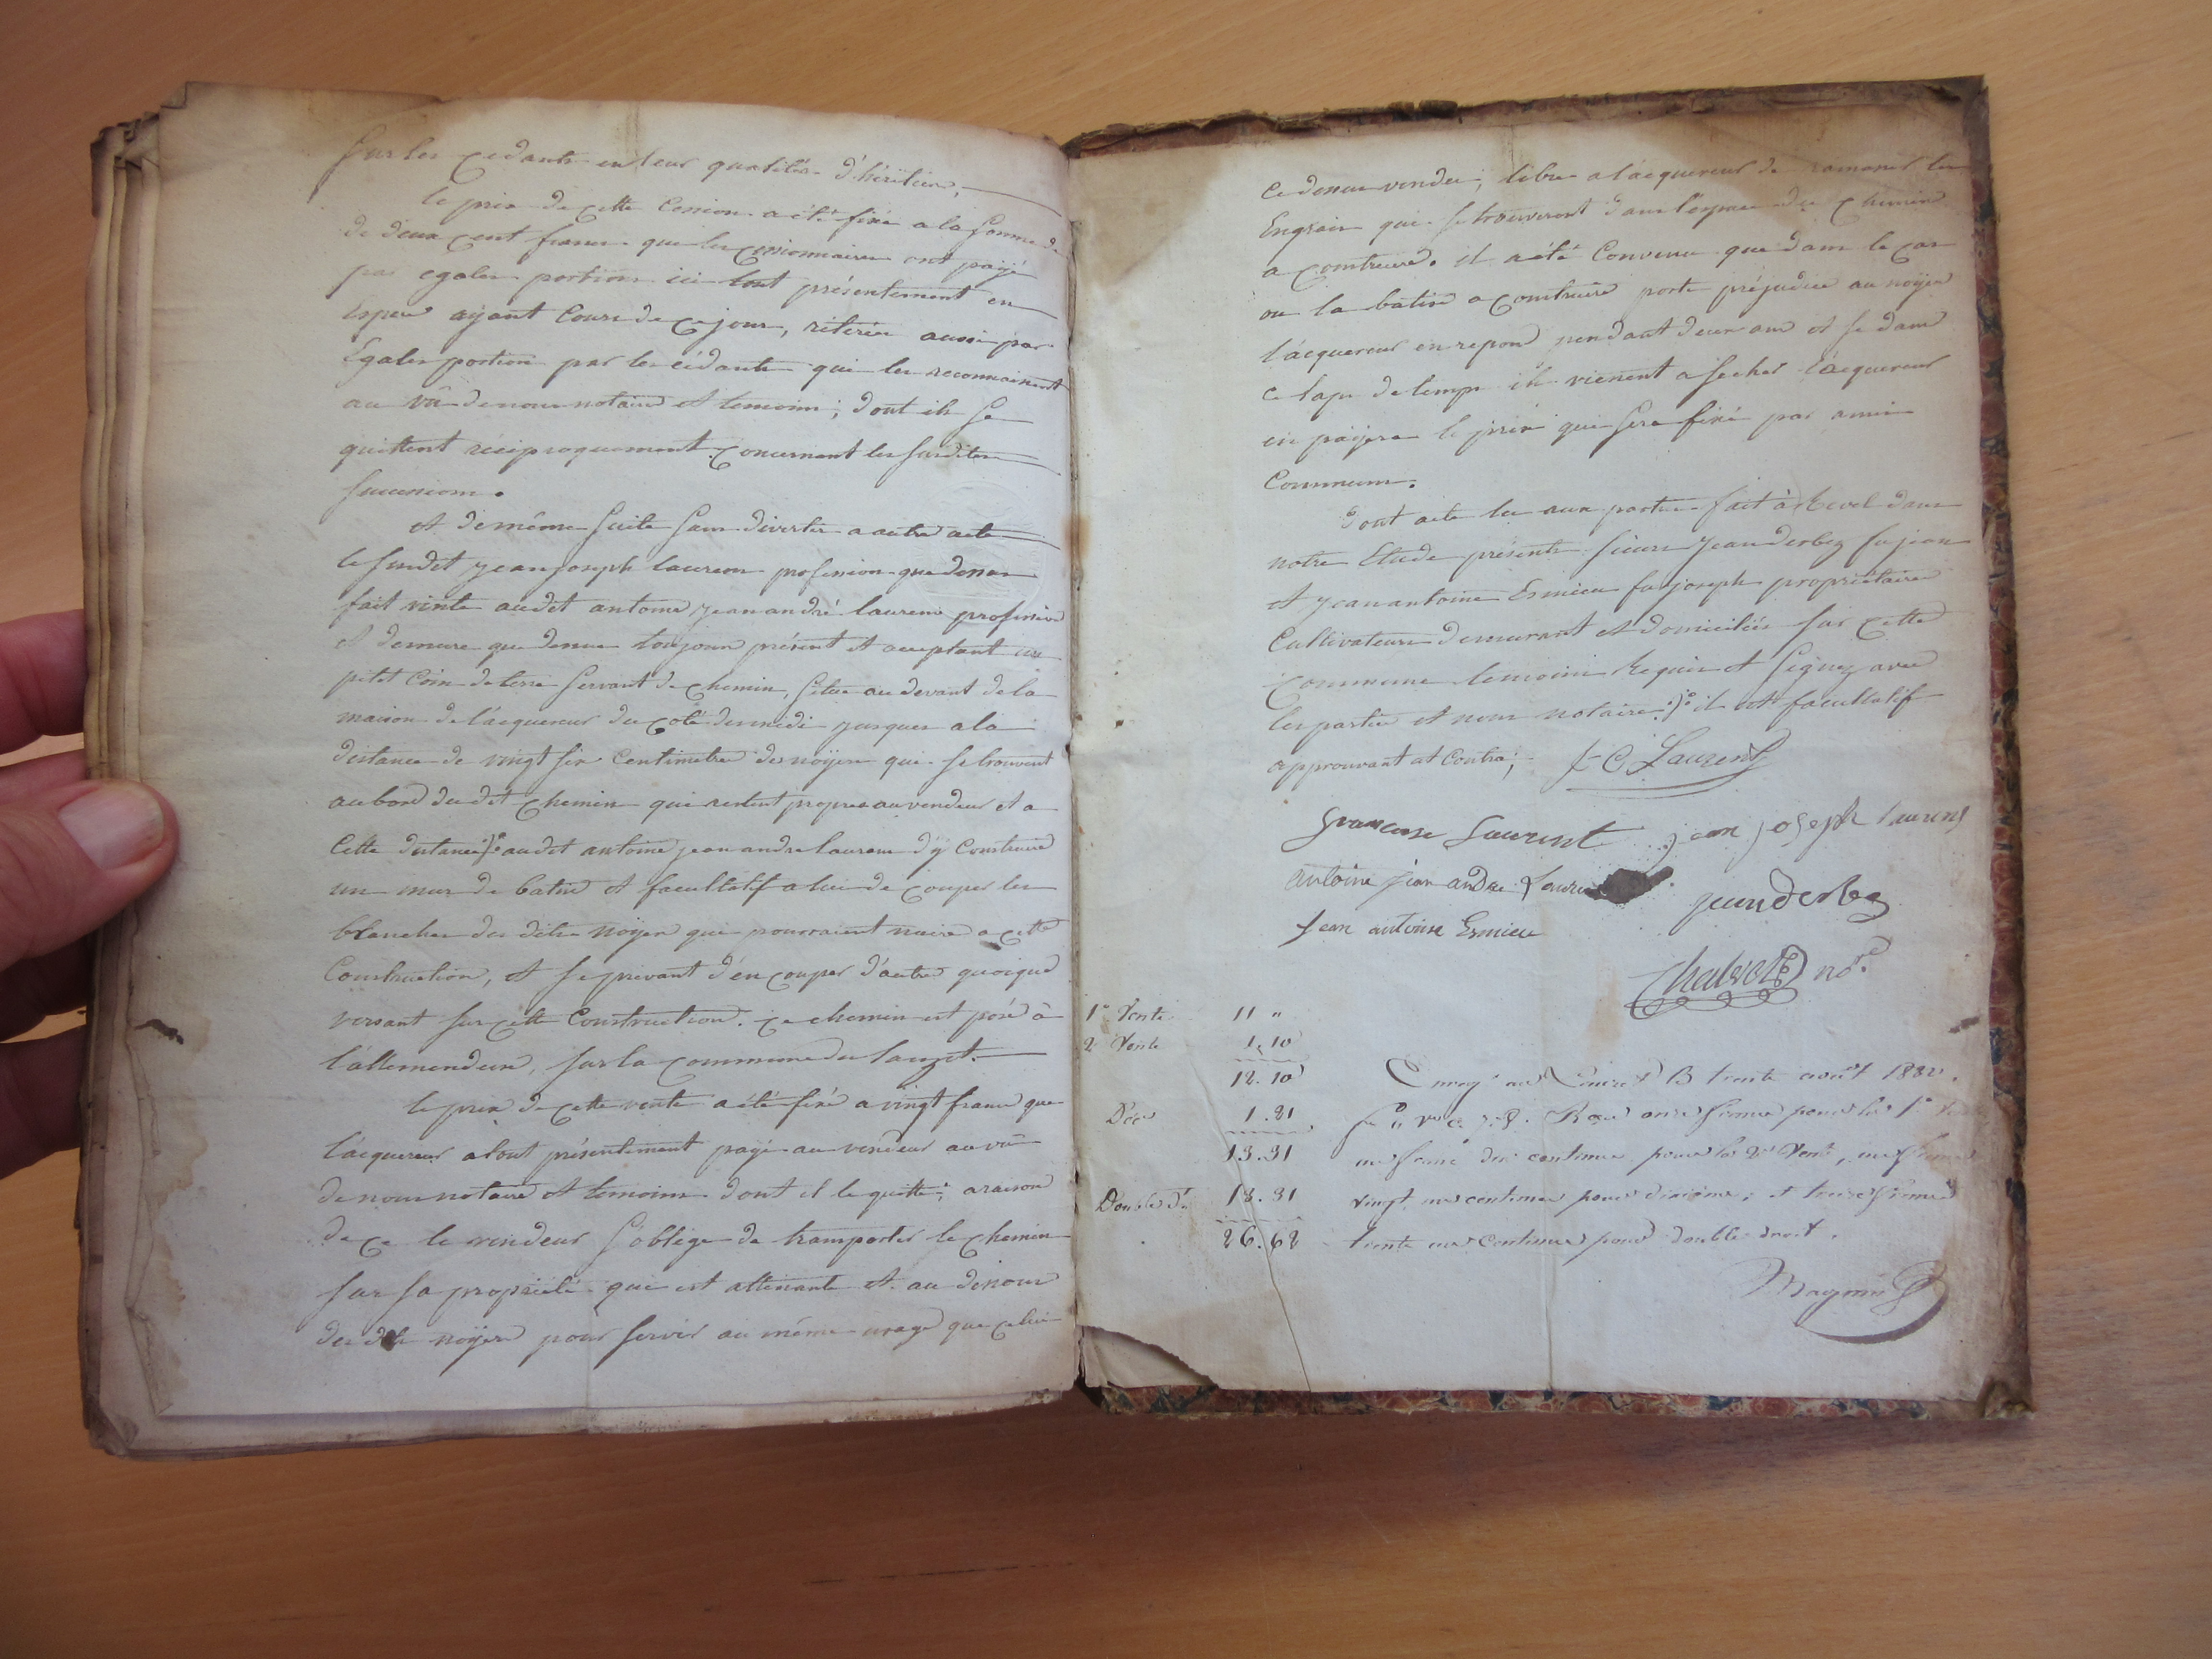 sur les cedants en leur qualités d'héritiers,
le prix de cette Cession a été fixé a la somme de
de deux cent francs que les cessionnaires ont païjé
par egales portions ici tout présentement en
Especes aÿant Cours de ce jour, rétirées aussi par
Egales portion par les cédants qui les reconnaissent
au vû de nous notaire et temoins; dont ils se
quittent réciproquement concernant les susdites
successions.
et de même suite sans divertir a autre acte
le susdit jean joseph laurens profession que dessus
fait vente audit antoine jean andré laurens profession
et demeure que dessus toujours présent et acceptant un
petit Coin de terre servant de chemin, situé au devant de la
maison de l'acquereur du coté du midi jusques a la
distance de vingt six Centimetres des noÿers qui se trouvent
au bord du dit chemin qui restent propres au vendeur et a
Cette distance audit antoine jean andre laurens d'ÿ Construire
un mur de batise et facultatif a lui de couper les
blanches des dits noÿers qui pourraient nuire a cette
Construction, et se privant d'en couper d'autres quoique
versant sur cette Construction. ce chemin est posé à
l'allemendeire, sur la commune du lauzet.
le prix de cette vente a été fixé a vingt francs que
l'acquereur a tout présentement paÿé au vendeur au vû
de nous notaire et temoins dont il le quitte; a raison
de ce le vendeur s'oblige de transporter le chemin
sur sa propriété qui est attenante et au dessous
des dits noÿers pour servir au même usage que celui
Ce dessus vendu; libre a l'acquereur de ramener les
Engrais qui se trouveront dans l'espace du chemin
a construire. il a été Convenu que dans le cas
ou la batise a construire porte préjudice au noÿers
l'acquereur en repond pendant deux ans et si dans
ce laps de temps ils vienent a secher l'acquereur
en païjera le prix qui sera fixé par amis
Communs.
Dont acte lu aux parties fait à Revel dans
notre Etude présents sieurs jean derbez fu jean
et jean antoine Esmieu fu joseph propriétaires
Cultivateurs demeurant et domiciliés sur cette
Commune temoins Requis et signez avec
les parties et nous notaire; il est facultatif
approuvant et Contra; J C Laurens
francoise Laurent jean joseph laurens
antoine jean andre Laurens
jean derbez
jean antoine Esmieu
Chalvet nore
1e Vente 11 "
2e Vente 1.10
12.10
Dec 1.21
13.31
Double dt 13.31
26.62
Enregé au Lauzet le trente août 1832.
Reçu onze francs pour la 1e Vente
un franc dix centimes pour la 2e Vente, un franc
vingt un centimes pour dixième; et treize francs
trente un Centimes pour double droit.